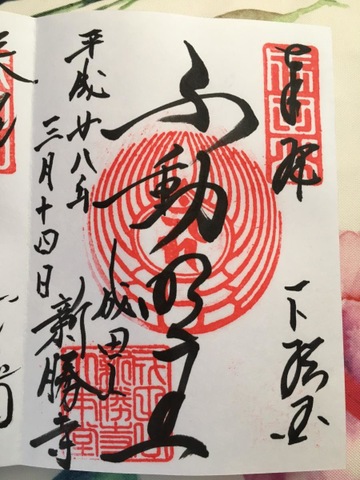 奉拝
下総国
不動明王
成田山
新勝寺
平成廿八年
三月十四日